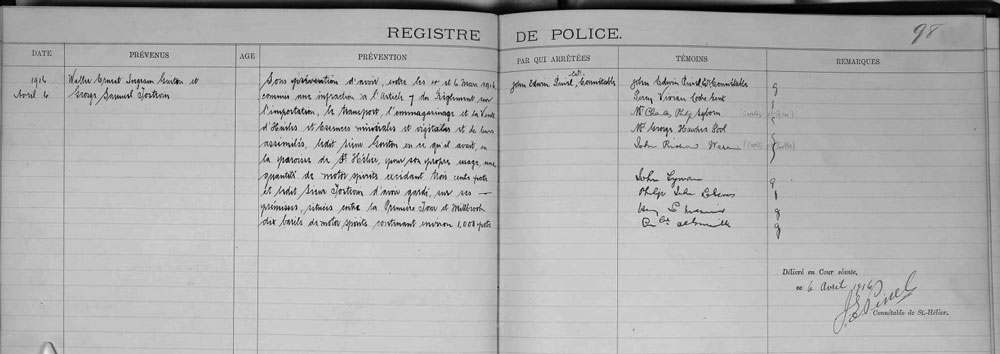 REGISTRE DE POLICE.
98
DATE PRÉVENUS AGE PRÉVENTION PAR QUI ARRÊTÉES TÉMOINS REMARQUES
1916
Avril 6
Walter Ernest Ingram et
George Samuel
Sous prévention d'avoir, entre les 4 et 6 Mars 1916
commis une infraction à l'Article 7 du Règlement sur
l'importation, le transport, l'emmagasinage et la Vente
d'Huiles et Essences minérales et végétales et de leurs
assimilés, ledit Sieur en ce qu'il avait, en
la paroisse de St. Hélier, pour son propre usage, une
quantité de motor spirits excédant trois cents pots
et ledit Sieur d'avoir gardé, sur ses
prémisses, situées entre la Première Tour et Millbrook
dix barils de motor spirits contenant environ 1,000 pots
John Edwin Pinel, Connétable
John Edwin Pinel, Connétable
Percy Vivian
Mr. Charles Philip
Mr. George Hawkins
John Richard
John
Philip John
Délivré en Cour séante,
ce 6 Avril 1916
J. E. Pinel
Connétable de St.-Hélier.